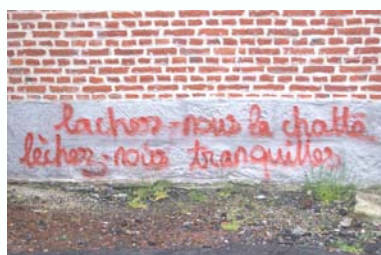 lachez-nous la chatte
lèchez-nous tranquilles